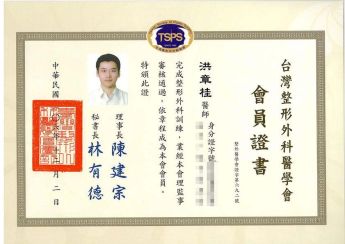 TSPS
台灣整形外科醫學會
會員證書
整形醫學會證字第六九二號
洪章桂醫師
身分證字號
完成整形外科訓練，業經本會理監事
審核通過，依章程成為本會會員。
特頒此證
理事長 陳建宗
秘書長 林有德
中華民國
月二日